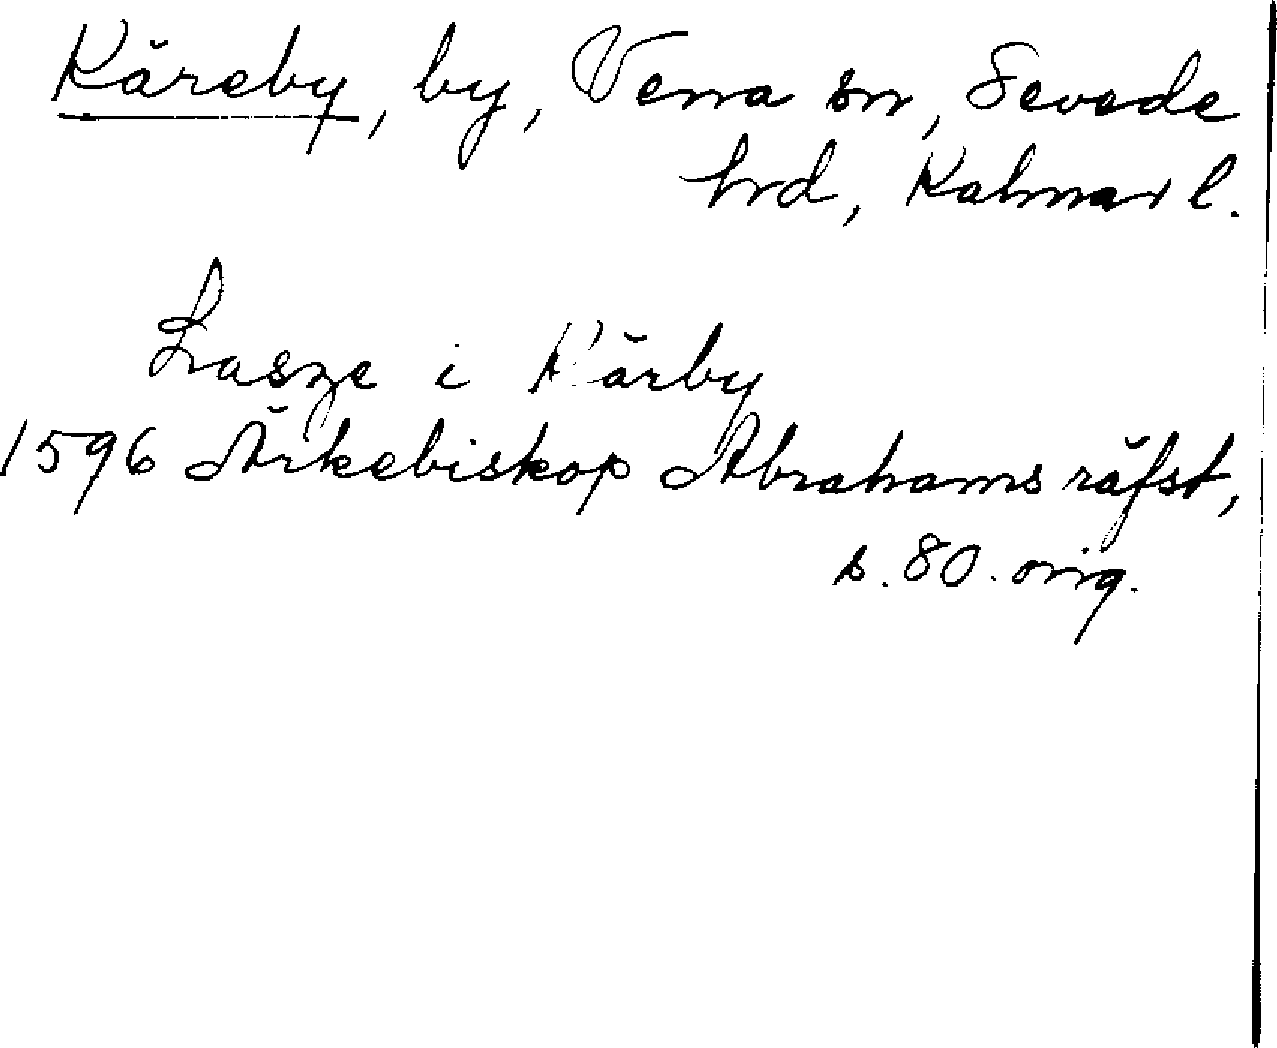 Käreby, by, Vena sn, Sevede
hrd, Kalmar l.
Lasze i Kärby
1596 Ärkebiskop Abrahams räfst,
s. 80. orig.